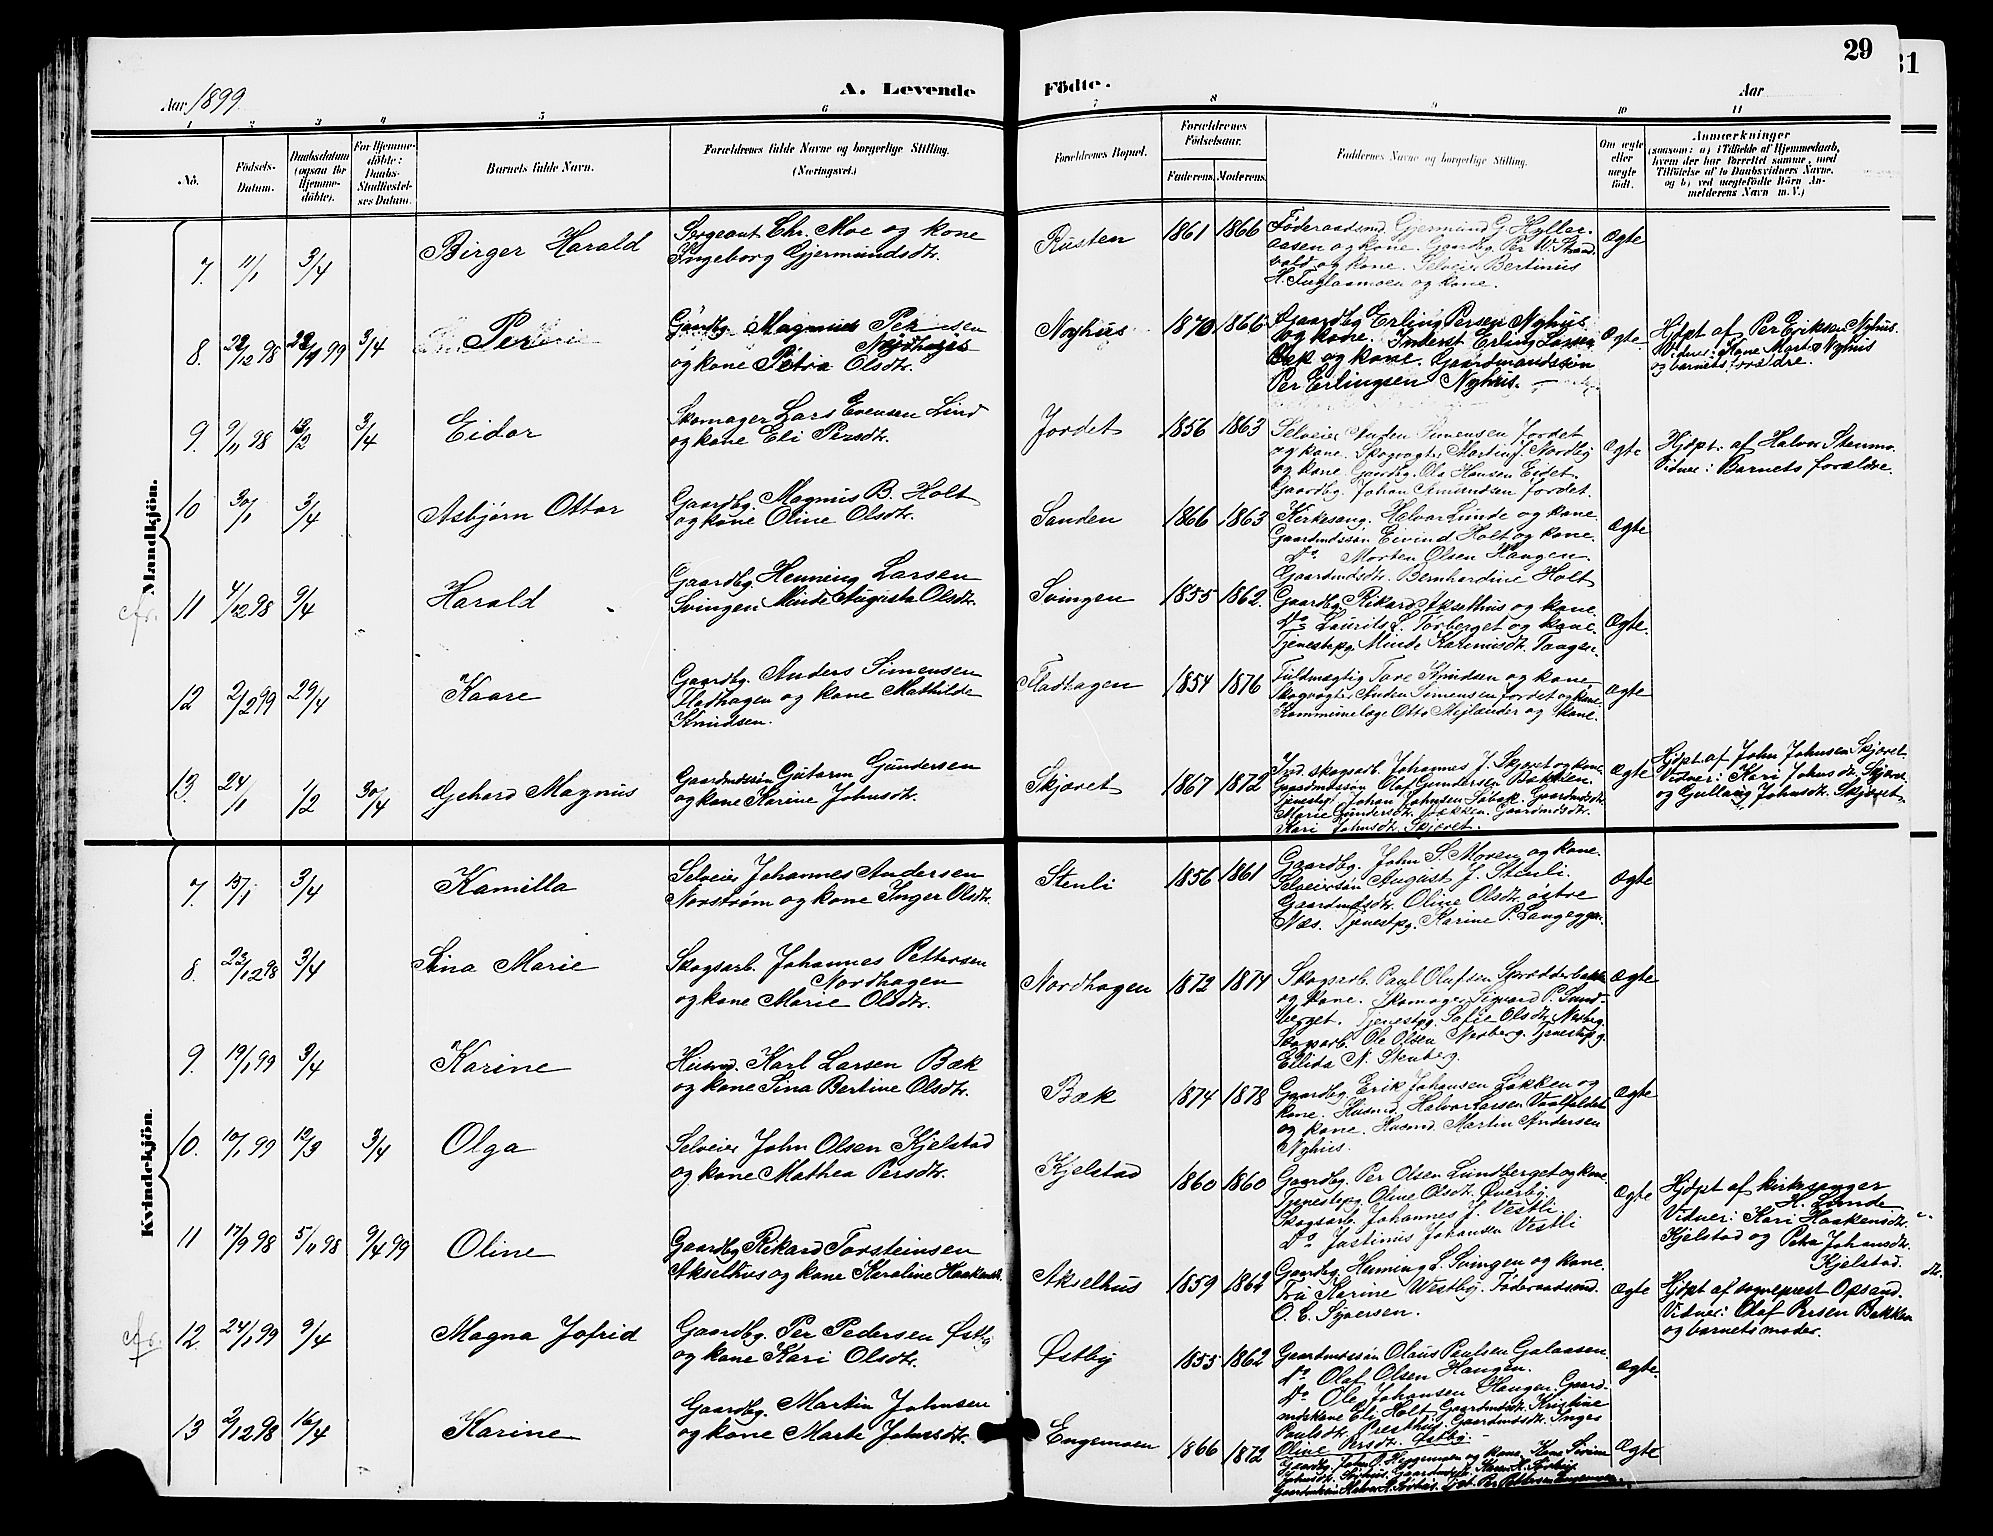 29
31
Aar 1899.
A. Levende
Födte.
Aar
1 2 3 4 5 6 7 8 9 10 11
No.
Födsels-Datum.
Daabsdatum (ogsaa for Hjemme-döbte).
For Hjemme-döbte: Daabs-Stadfæstel-ses Datum.
Barnets fulde Navn.
Forældrenes fulde Navne og borgerlige Stilling. (Næringsvei.)
Forældrenes Bopæl.
Forældrenes Födselsaar.
Faderens. Moderens.
Faddernes Navne og borgerlige Stilling.
Om ægte eller uægte födt.
Anmærkninger (saasom: a) i Tilfælde af Hjemmedaab, hvem der har forrettet samme, med Tilföielse af to Daabsvidners Navne, og b) ved uægtefödte Börn An-melderens Navn m. V.)
Mandkjön.
7. 11/1 3/4 Birger Harald
Sergeant Chr. Moe og kone
Ingeborg Gjermundsdtr.
Rusten 1861 1866
Föderaadsmd. Gjermund G. Hyllar-
aasen og kone. Gaardbg. Per W. Strand-
vold og kone. Selveier Bertinius
H. Fuglaasmoen og kone.
Ægte
8. 22/12 98 99 3/4 Per
Gaardbg. Magnus
og kone Petra Olsdtr.
Nyhus 1870 1866
Gaardbg. Erling Persen Nyhus
og kone. Inderst Erling Larsen
og kone. Gaardmandssön
Per Erlingsen Nyhus.
Ægte.
Hjdpt af Per Eriksen Nyhus.
Vidner: Kone Marte Nyhus
og barnets forældre.
9. 9/11 98 12/2 3/4 Eidar
Skomager Lars Evensen Lind
og kone Eli Persdtr.
Jordet 1856 1863
Selveier Anden Simensen Jordet
og kone. Skogvogter Martin J. Nordby
og kone. Gaardbg. Ole Hansen Eidet.
Gaardbg. Johan Amundsen Jordet.
Ægte
Hjdpt: af Halvor Stenmo.
Vidner: Barnets forældre.
10 30/1 3/4 Asbjørn Ottar
Gaardbg. Magnus B. Holt
og kone Oline Olsdtr.
Sanden 1866 1863
Kirkesang. Halvor Lunde og kone.
Gaardmdssön Eivind Holt og kone.
Do Morten Olsen Haugen
Gaardmdsdtr. Bernhardine Holt
Ægte
cfr. 11 4/12 98 9/4 Harald
Gaardbg. Henning Larsen
Svingen Minde Augusta Olsdtr.
Svingen 1855 1862.
Gaardbg. Rikard Akselhus og kone.
Do Laurits L. Torberget og kone.
Tjenestepg. Minde Karinusdtr. Taagen.
Ægte.
12 2/2 99 29/4 Kaare
Gaardbg. Anders Simensen
Fladhagen og kone Mathilde
Knudsen.
Fladhagen 1854 1876
Fuldmægtig Tore Knudsen og kone
Skogvogter Anden Simensen Jordet og kone.
Kommunelæge Otto Mejlænder og kone.
Ægte
13. 24/1 1/2 30/4 Gehard Magnus
Gaardmdssön Gutorm Gundersen
og kone Karine Johnsdtr.
Skjæret 1867 1872
Ind. skogsarb. Johannes J. Skjæret og kone.
Gaardmdssön Olaf Gundersen Bækken.
Tjenestep. Johan Johnsen Søbak. Gaardmdsdtr.
Marie Gundersdtr. Bækken. Gaardmdsdtr.
Kari Johnsdtr. Skjæret.
Ægte
Hjdpt af John Johnsen Skjæret
Vidner: Kari Johnsdtr. Skjæret
og Gullaug Johnsdtr. Skjæret.
Kvindekjön.
7. 15/1 3/4 Kamilla
Selveier Johannes Andersen
Norstrøm og kone Inger Olsdtr.
Stenli 1856 1861
Gaardbg. John S. Moren og kone.
Selveiersön August J. Stenli.
Gaardmdsdtr. Oline Olsdtr. östre
Næs. Tjenestpg. Karine P. Langeggen.
Ægte
8. 23/12 98 3/4 Sina Marie
Skogsarb. Johannes Pettersen
Nordhagen
og kone Marie Olsdtr.
Nordhagen 1872 1874
Skogsarb. Paul Olufsen Skrædderbakken
og kone. Skomager Sigvard P. Sund-
berget. Tjenestpg. Sofie Olsdtr. Norberg.
Skogsarb. Ole Olsen Norberg. Tjenestepg.
Ellida N. Stenberg.
Ægte
9. 19/1 99 3/4 Karine
Husmd. Karl Larsen Bæk
og kone Sina Bertine Olsdtr.
Bæk 1874 1878
Gaardbg. Erik Johansen Løkken og
kone. Husmd. Halvor Larsen Vaalfaldet
og kone. Husmd. Martin Andersen
Nyhus.
Ægte
10. 10/1 99 12/3 3/4 Olga
Selveier John Olsen Kjelstad
og kone Mathea Persdtr.
Kjelstad 1860 1860
Gaardbg. Per Olsen Lundberget og kone
Tjenestepg. Oline Olsdtr. Øverby.
Skogsarb. Johannes J. Vestli.
Do Justinus Johansen Vestli
Ægte
Hjdpt af kirkesanger
H. Lunde
Vidner: Kari Haakensdtr.
Kjelstad og Petra Johansdtr.
Kjelstad.
11 17/9 98 5/11 98 9/4 99 Oline
Gaardbg. Rikard Torsteinsen
Akselhus og kone Karoline Haakensdtr.
Akselhus 1859 1862
Gaardbg. Henning L. Svingen og kone.
Fru Karine Westby. Föderaadsmd.
O. E. Syversen.
Ægte
Hjdpt af sogneprest Opsand.
Vidner: Olaf Persen Bakken
og barnets moder.
cfr. 12. 24/1 99 9/4 Magna Jofrid
Gaardbg. Per Pedersen Østby
og kone Kari Olsdtr.
Østby 1855 1862
Gaardmdssön Olaus Paulsen Galaasen.
Do Olaf Olsen Haugen.
Do Ole Johansen Haugen. Gaard-
mdskone Eli Holt. Gaardmdsdtr. Kristine
Paulsdtr. Presthus. Gaardmdsdtr. Inger
Oline Persdtr. Østby.
Ægte.
13 2/12 98 16/4 Karine
Gaardbg. Martin Johnsen
og kone Marte Johnsdtr.
Engemoen 1866 1872
Ægte